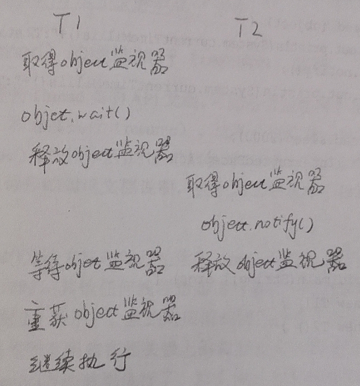 T1 T2
取得object监视器
objct.wait()
释放object监视器
取得object监视器
object.notify()
等待objet监视器 释放object监视器
重获object监视器
继续执行